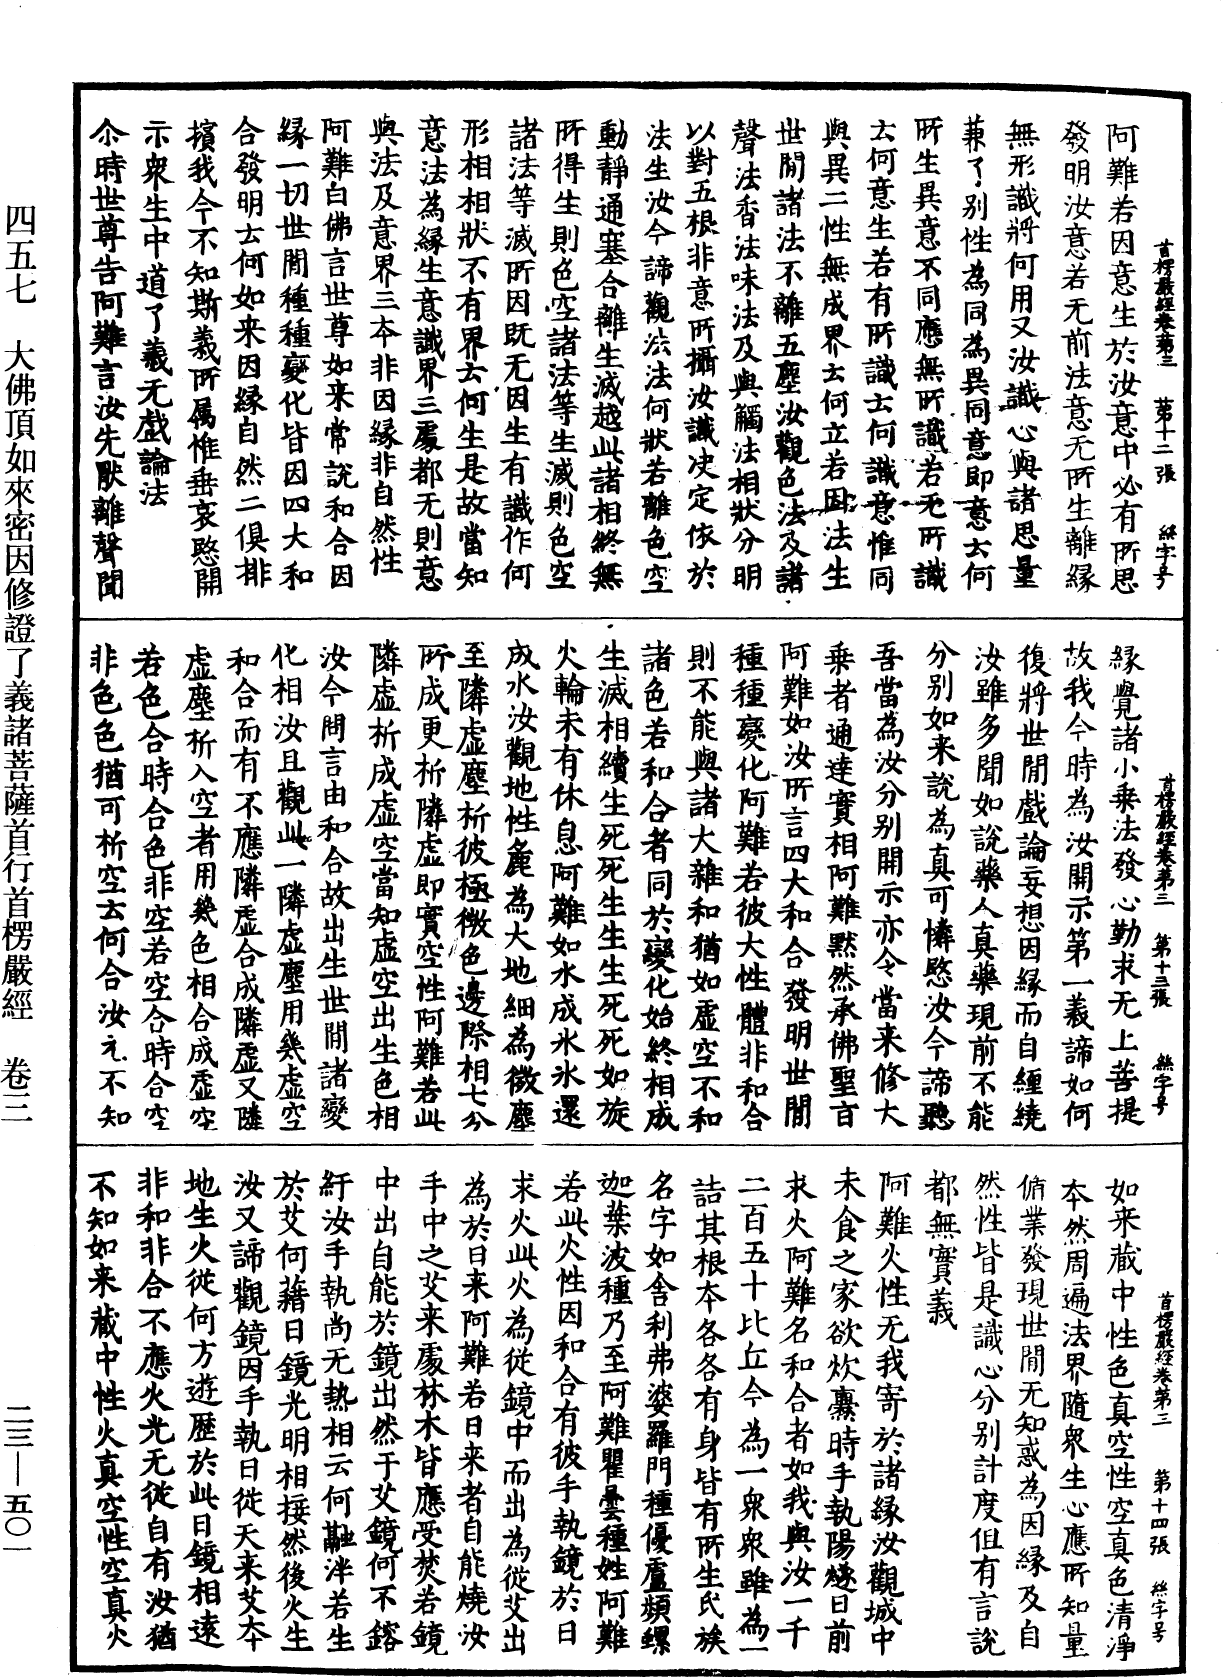 首楞嚴經卷第三　第十二張　絲字号
阿難若因意生於汝意中必有所思
發明汝意若无前法意无所生離緣
無形識將何用又汝識心與諸思量
兼了別性為同為異同意即意云何
所生異意不同應無所識若无所識
云何意生若有所識云何識意惟同
與異二性無成界云何立若因法生
世間諸法不離五塵汝觀色法及諸
聲法香法味法及與觸法相狀分明
以對五根非意所攝汝識決定依於
法生汝今諦觀法法何狀若離色空
動靜通塞合離生滅越此諸相終無
所得生則色空諸法等生滅則色空
諸法等滅所因既无因生有識作何
形相相狀不有界云何生是故當知
意法為緣生意識界三處都无則意
與法及意界三本非因緣非自然性
阿難白佛言世尊如来常說和合因
緣一切世間種種變化皆因四大和
合發明云何如来因緣自然二俱排
擯我今不知斯義所属惟垂哀愍開
示衆生中道了義无戲論法
尒時世尊告阿難言汝先猒離聲聞
首楞嚴經卷第三　第十三張　絲字号
緣覺諸小乗法發心勤求无上菩提
故我今時為汝開示第一義諦如何
復將世間戲論妄想因緣而自纏繞
汝雖多聞如說藥人真藥現前不能
分別如来說為真可憐愍汝今諦聽
吾當為汝分別開示亦令當来修大
乗者通達實相阿難黙然承佛聖旨
阿難如汝所言四大和合發明世間
種種變化阿難若彼大性體非和合
則不能與諸大雜和猶如虛空不和
諸色若和合者同於變化始終相成
生滅相續生死死生生生死死如旋
火輪未有休息阿難如水成氷氷還
成水汝觀地性麁為大地細為微塵
至隣虛塵析彼極微色邊際相七分
所成更析隣虛即實空性阿難若此
隣虛析成虛空當知虛空出生色相
汝今問言由和合故出生世間諸變
化相汝且觀此一隣虛塵用幾虛空
和合而有不應隣虛合成隣虛又隣
虛塵析入空者用幾色相合成虛空
若色合時合色非空若空合時合空
非色色猶可析空云何合汝元不知
首楞嚴經卷第三　第十四張　絲字号
如来藏中性色真空性空真色清淨
本然周遍法界隨衆生心應所知量
循業發現世間无知惑為因緣及自
然性皆是識心分別計度但有言說
都無實義
阿難火性无我寄於諸緣汝觀城中
未食之家欲炊爨時手執陽燧日前
求火阿難名和合者如我與汝一千
二百五十比丘今為一衆衆雖為一
詰其根本各各有身皆有所生氏族
名字如舍利弗婆羅門種優盧頻螺
迦葉波種乃至阿難瞿曇種姓阿難
若此火性因和合有彼手執鏡於日
求火此火為從鏡中而出為從艾出
為於日来阿難若日来者自能燒汝
手中之艾来處林木皆應受焚若鏡
中出自能於鏡出然于艾鏡何不鎔
紆汝手執尚无熱相云何融泮若生
於艾何藉日鏡光明相接然後火生
汝又諦觀鏡因手執日從天来艾本
地生火從何方遊歷於此日鏡相遠
非和非合不應火光无從自有汝猶
不知如来藏中性火真空性空真火
四五七　大佛頂如來密因修證了義諸菩薩首行首楞嚴經　卷三　二三—五〇一